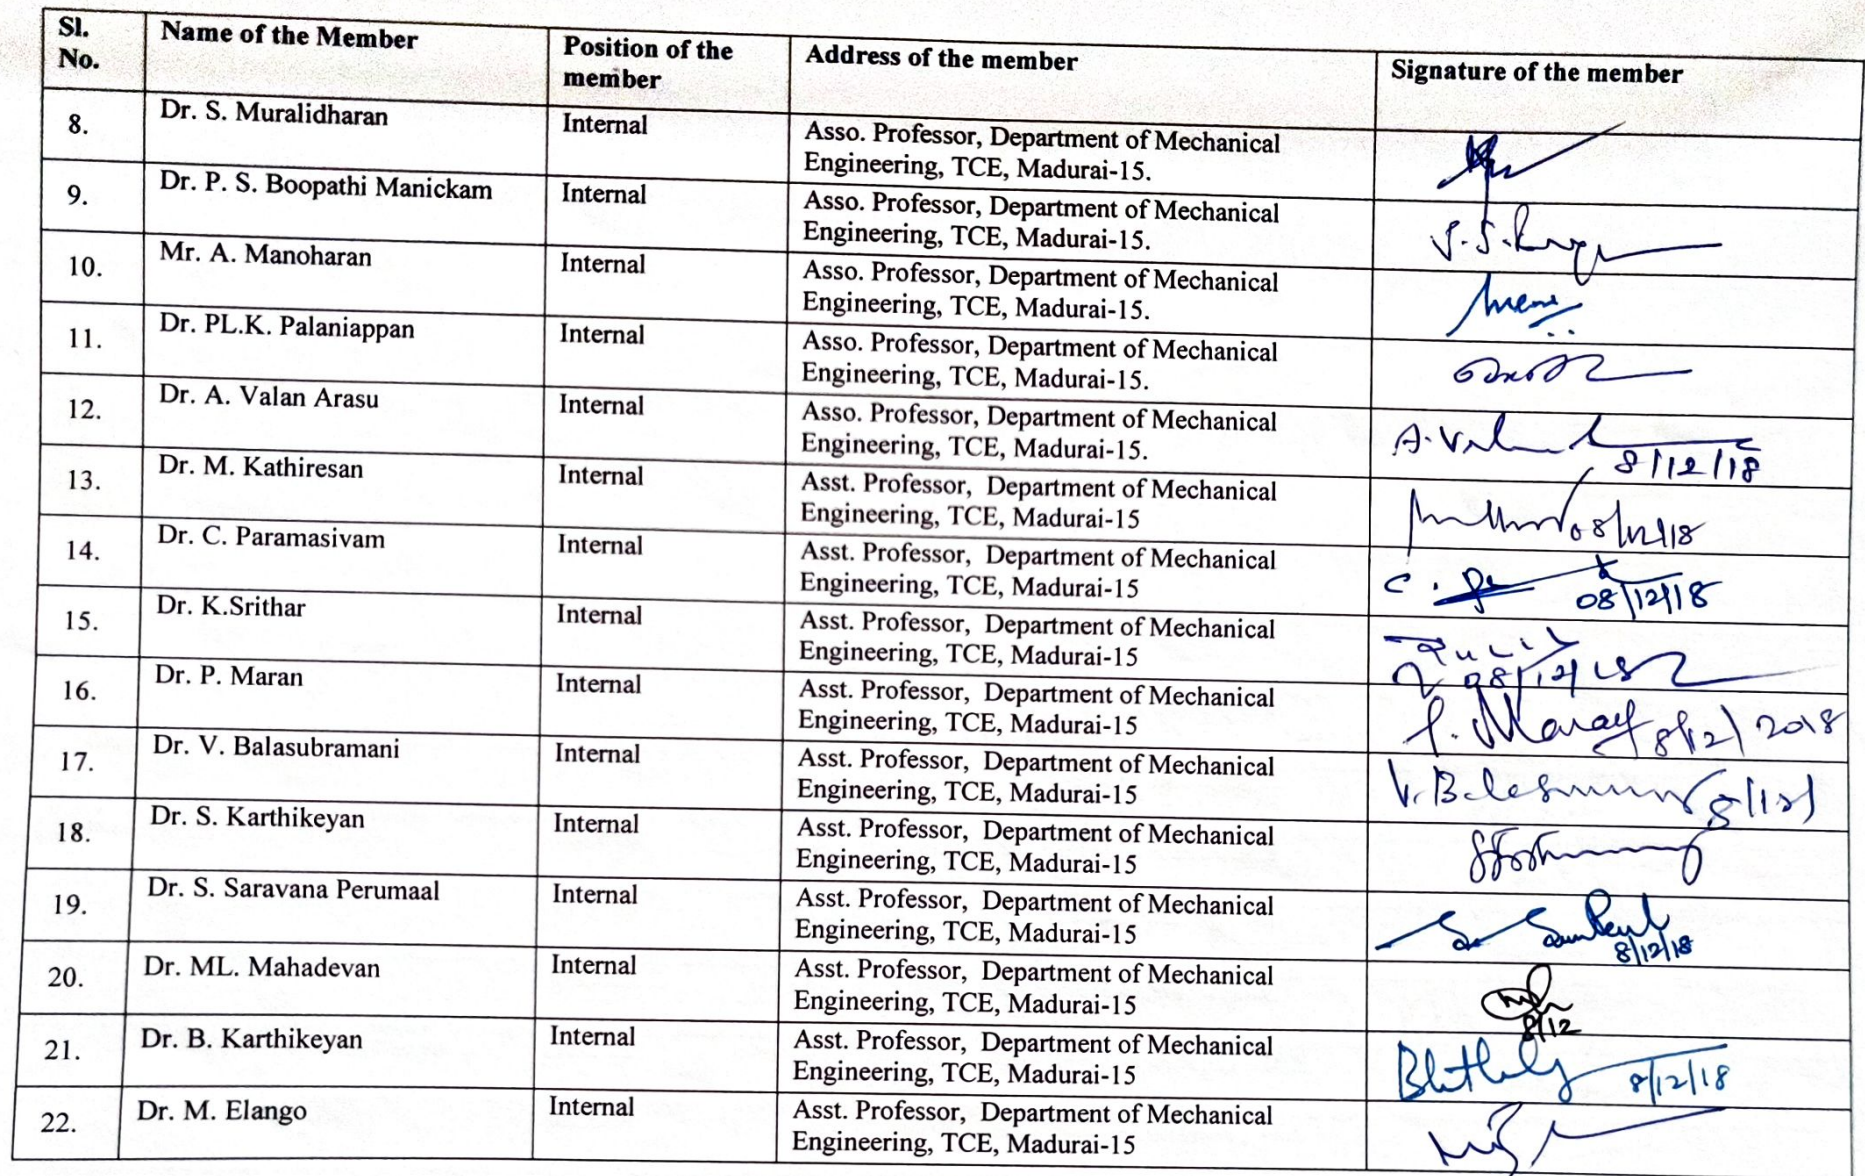 Sl. No.
Name of the Member
Position of the member
Address of the member
Signature of the member
8.
Dr. S. Muralidharan
Internal
Asso. Professor, Department of Mechanical
Engineering, TCE, Madurai-15.
9.
Dr. P. S. Boopathi Manickam
Internal
Asso. Professor, Department of Mechanical
Engineering, TCE, Madurai-15.
10.
Mr. A. Manoharan
Internal
Asso. Professor, Department of Mechanical
Engineering, TCE, Madurai-15.
11.
Dr. PL.K. Palaniappan
Internal
Asso. Professor, Department of Mechanical
Engineering, TCE, Madurai-15.
12.
Dr. A. Valan Arasu
Internal
Asso. Professor, Department of Mechanical
Engineering, TCE, Madurai-15.
8/12/18
13.
Dr. M. Kathiresan
Internal
Asst. Professor, Department of Mechanical
Engineering, TCE, Madurai-15
08/12/18
14.
Dr. C. Paramasivam
Internal
Asst. Professor, Department of Mechanical
Engineering, TCE, Madurai-15
08/12/18
15.
Dr. K.Srithar
Internal
Asst. Professor, Department of Mechanical
Engineering, TCE, Madurai-15
08/12/18
16.
Dr. P. Maran
Internal
Asst. Professor, Department of Mechanical
Engineering, TCE, Madurai-15
P. Maran 8/12/2018
17.
Dr. V. Balasubramani
Internal
Asst. Professor, Department of Mechanical
Engineering, TCE, Madurai-15
8/12/
18.
Dr. S. Karthikeyan
Internal
Asst. Professor, Department of Mechanical
Engineering, TCE, Madurai-15
19.
Dr. S. Saravana Perumaal
Internal
Asst. Professor, Department of Mechanical
Engineering, TCE, Madurai-15
8/12/18
20.
Dr. ML. Mahadevan
Internal
Asst. Professor, Department of Mechanical
Engineering, TCE, Madurai-15
8/12
21.
Dr. B. Karthikeyan
Internal
Asst. Professor, Department of Mechanical
Engineering, TCE, Madurai-15
8/12/18
22.
Dr. M. Elango
Internal
Asst. Professor, Department of Mechanical
Engineering, TCE, Madurai-15